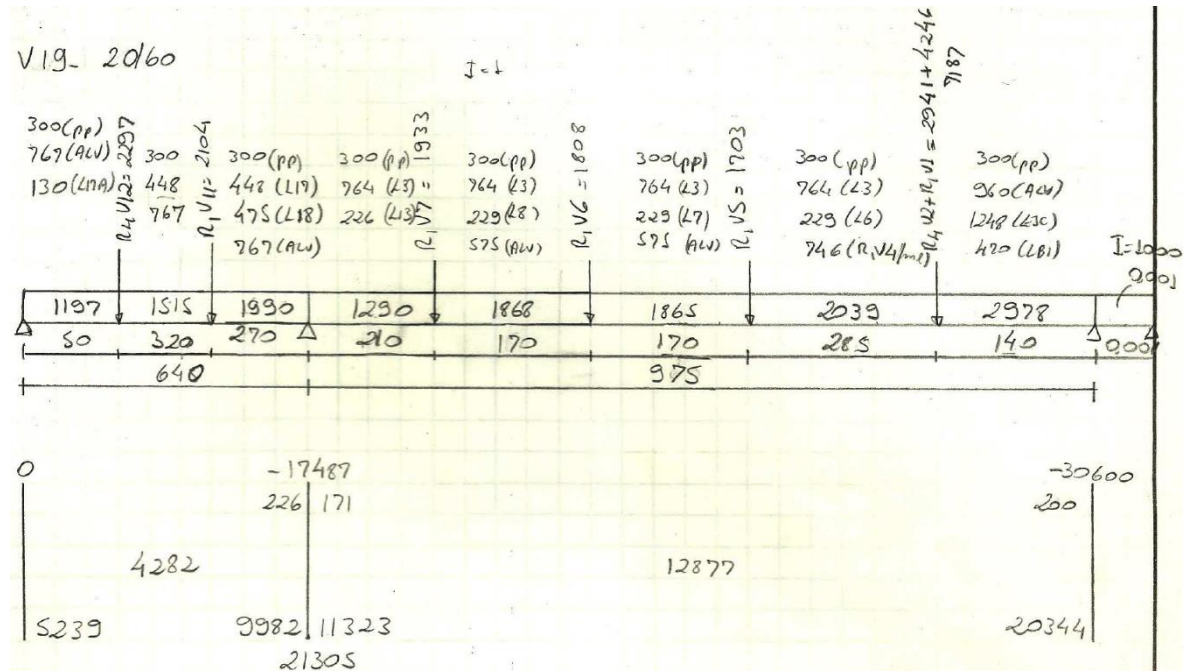 V19_ 20/60
I=1
300(pp)
767(ALV)
130(L17A)
R4V12=2297
300
448
767
R1V11=2104
300(pp)
448(L17)
475(L18)
767(ALV)
300(pp)
764(L3)
226(L13)
R1V7=1933
300(pp)
764(L3)
229(L8)
575(ALV)
R1V6=1808
300(pp)
764(L3)
229(L7)
575(ALV)
R1V5=1703
300(pp)
764(L3)
229(L6)
746(R1V4/ml)
R4V2+R1V1=2941+4246
7187
300(pp)
960(ALV)
1248(L3C)
470(LB1)
I=1000
0.001
1197 1515 1990 1290 1868 1865 2039 2978
50 320 270 210 170 170 285 140 0.001
640 975
0 -17487 -30600
226 171 200
4282 12877
5239 9982 11323 20344
21305